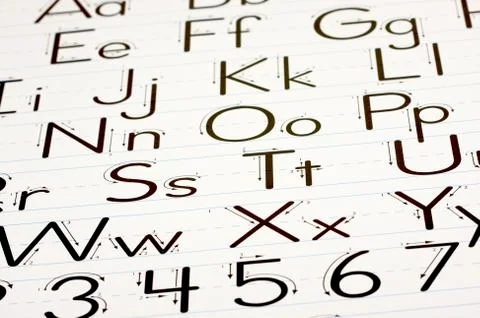 Aa
Ee Ff Gg
Ii Jj Kk Ll
Nn Oo Pp
Rr Ss Tt U
Ww Xx Yy
3 4 5 6 7